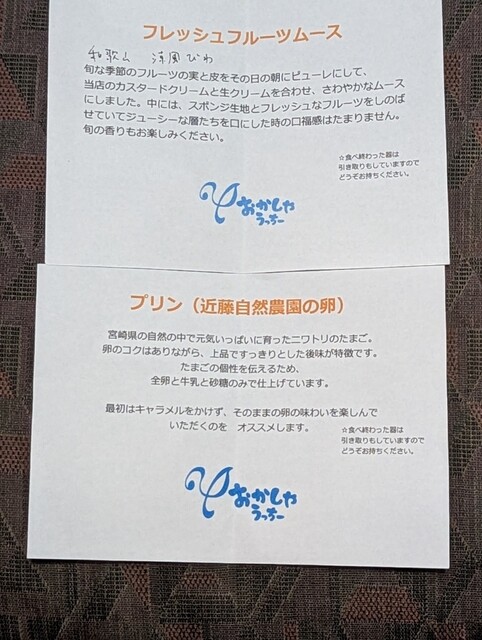 フレッシュフルーツムース
和歌山 涼風びわ
旬な季節のフルーツの実と皮をその日の朝にピューレにして、
当店のカスタードクリームと生クリームを合わせ、さわやかなムース
にしました。中には、スポンジ生地とフレッシュなフルーツをしのば
せていてジューシーな層たちを口にした時の口福感はたまりません。
旬の香りもお楽しみください。
☆食べ終わった器は
引き取りもしていますので
どうぞお持ちください。
おかしや
うっちー
プリン（近藤自然農園の卵）
宮崎県の自然の中で元気いっぱいに育ったニワトリのたまご。
卵のコクはありながら、上品ですっきりとした後味が特徴です。
たまごの個性を伝えるため、
全卵と牛乳と砂糖のみで仕上げています。
最初はキャラメルをかけず、そのままの卵の味わいを楽しんで
いただくのを オススメします。
☆食べ終わった器は
引き取りもしていますので
どうぞお持ちください。
おかしや
うっちー